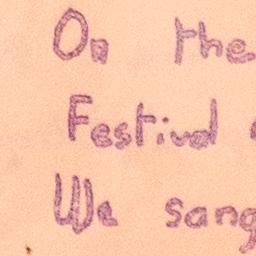 On the
Festival
We sang